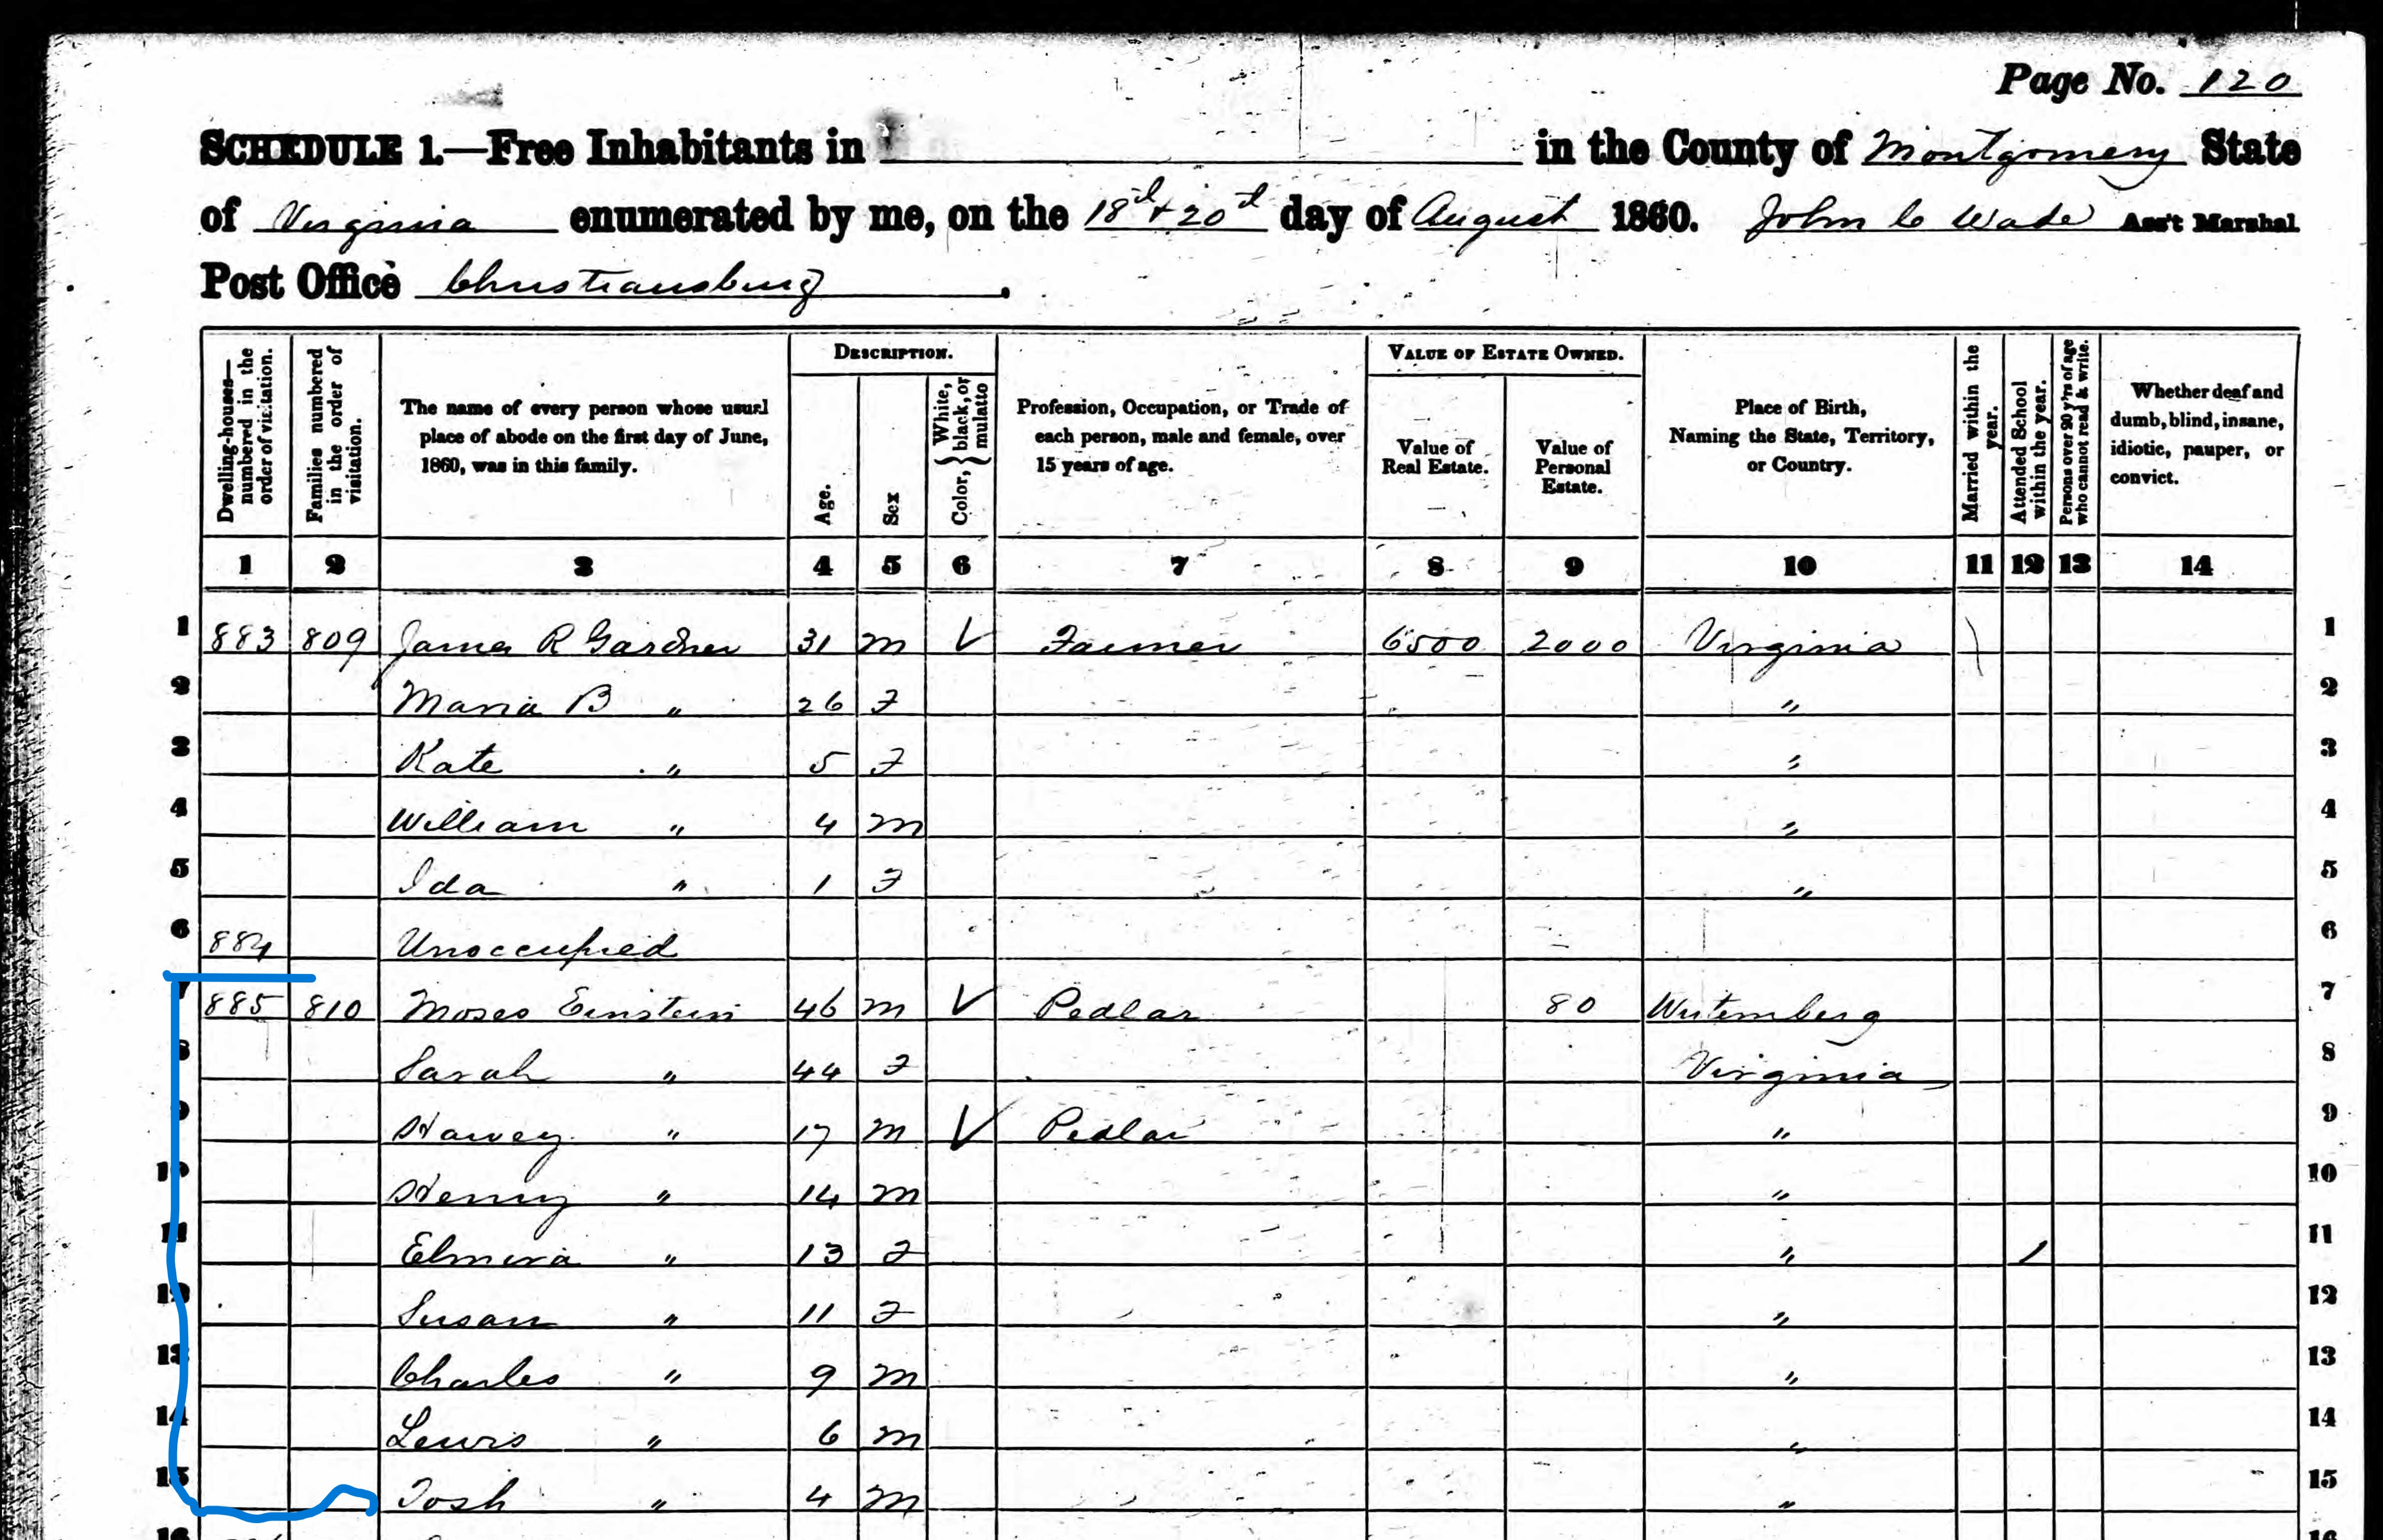 Page No. 120
SCHEDULE 1.—Free Inhabitants in in the County of Montgomery State
of Virginia enumerated by me, on the 18th & 20th day of August 1860. John C Wade Ass't Marshal
Post Office Christiansburg.
Dwelling-houses—numbered in the order of visitation.
Families numbered in the order of visitation.
The name of every person whose usual place of abode on the first day of June, 1860, was in this family.
DESCRIPTION.
Age.
Sex
Color, { White, black, or mulatto
Profession, Occupation, or Trade of each person, male and female, over 15 years of age.
VALUE OF ESTATE OWNED.
Value of Real Estate.
Value of Personal Estate.
Place of Birth, Naming the State, Territory, or Country.
Married within the year.
Attended School within the year.
Persons over 20 y'rs of age who cannot read & write.
Whether deaf and dumb, blind, insane, idiotic, pauper, or convict.
1 2 3 4 5 6 7 8 9 10 11 12 13 14
1 883 809 James R Gardner 31 m V Farmer 6500 2000 Virginia 1
2 Maria B " 26 F " 2
3 Kate " 5 F " 3
4 William " 4 m " 4
5 Ida " 1 F " 5
6 884 Unoccupied 6
7 885 810 Moses Einstein 46 m V Pedlar 80 Wutemberg 7
8 Sarah " 44 F Virginia 8
9 Harvey " 17 m V Pedlar " 9
10 Henry " 14 m " 10
11 Elmira " 13 F " / 11
12 Susan " 11 F " 12
13 Charles " 9 m " 13
14 Lewis " 6 m " 14
15 Josh " 4 m " 15
16 16